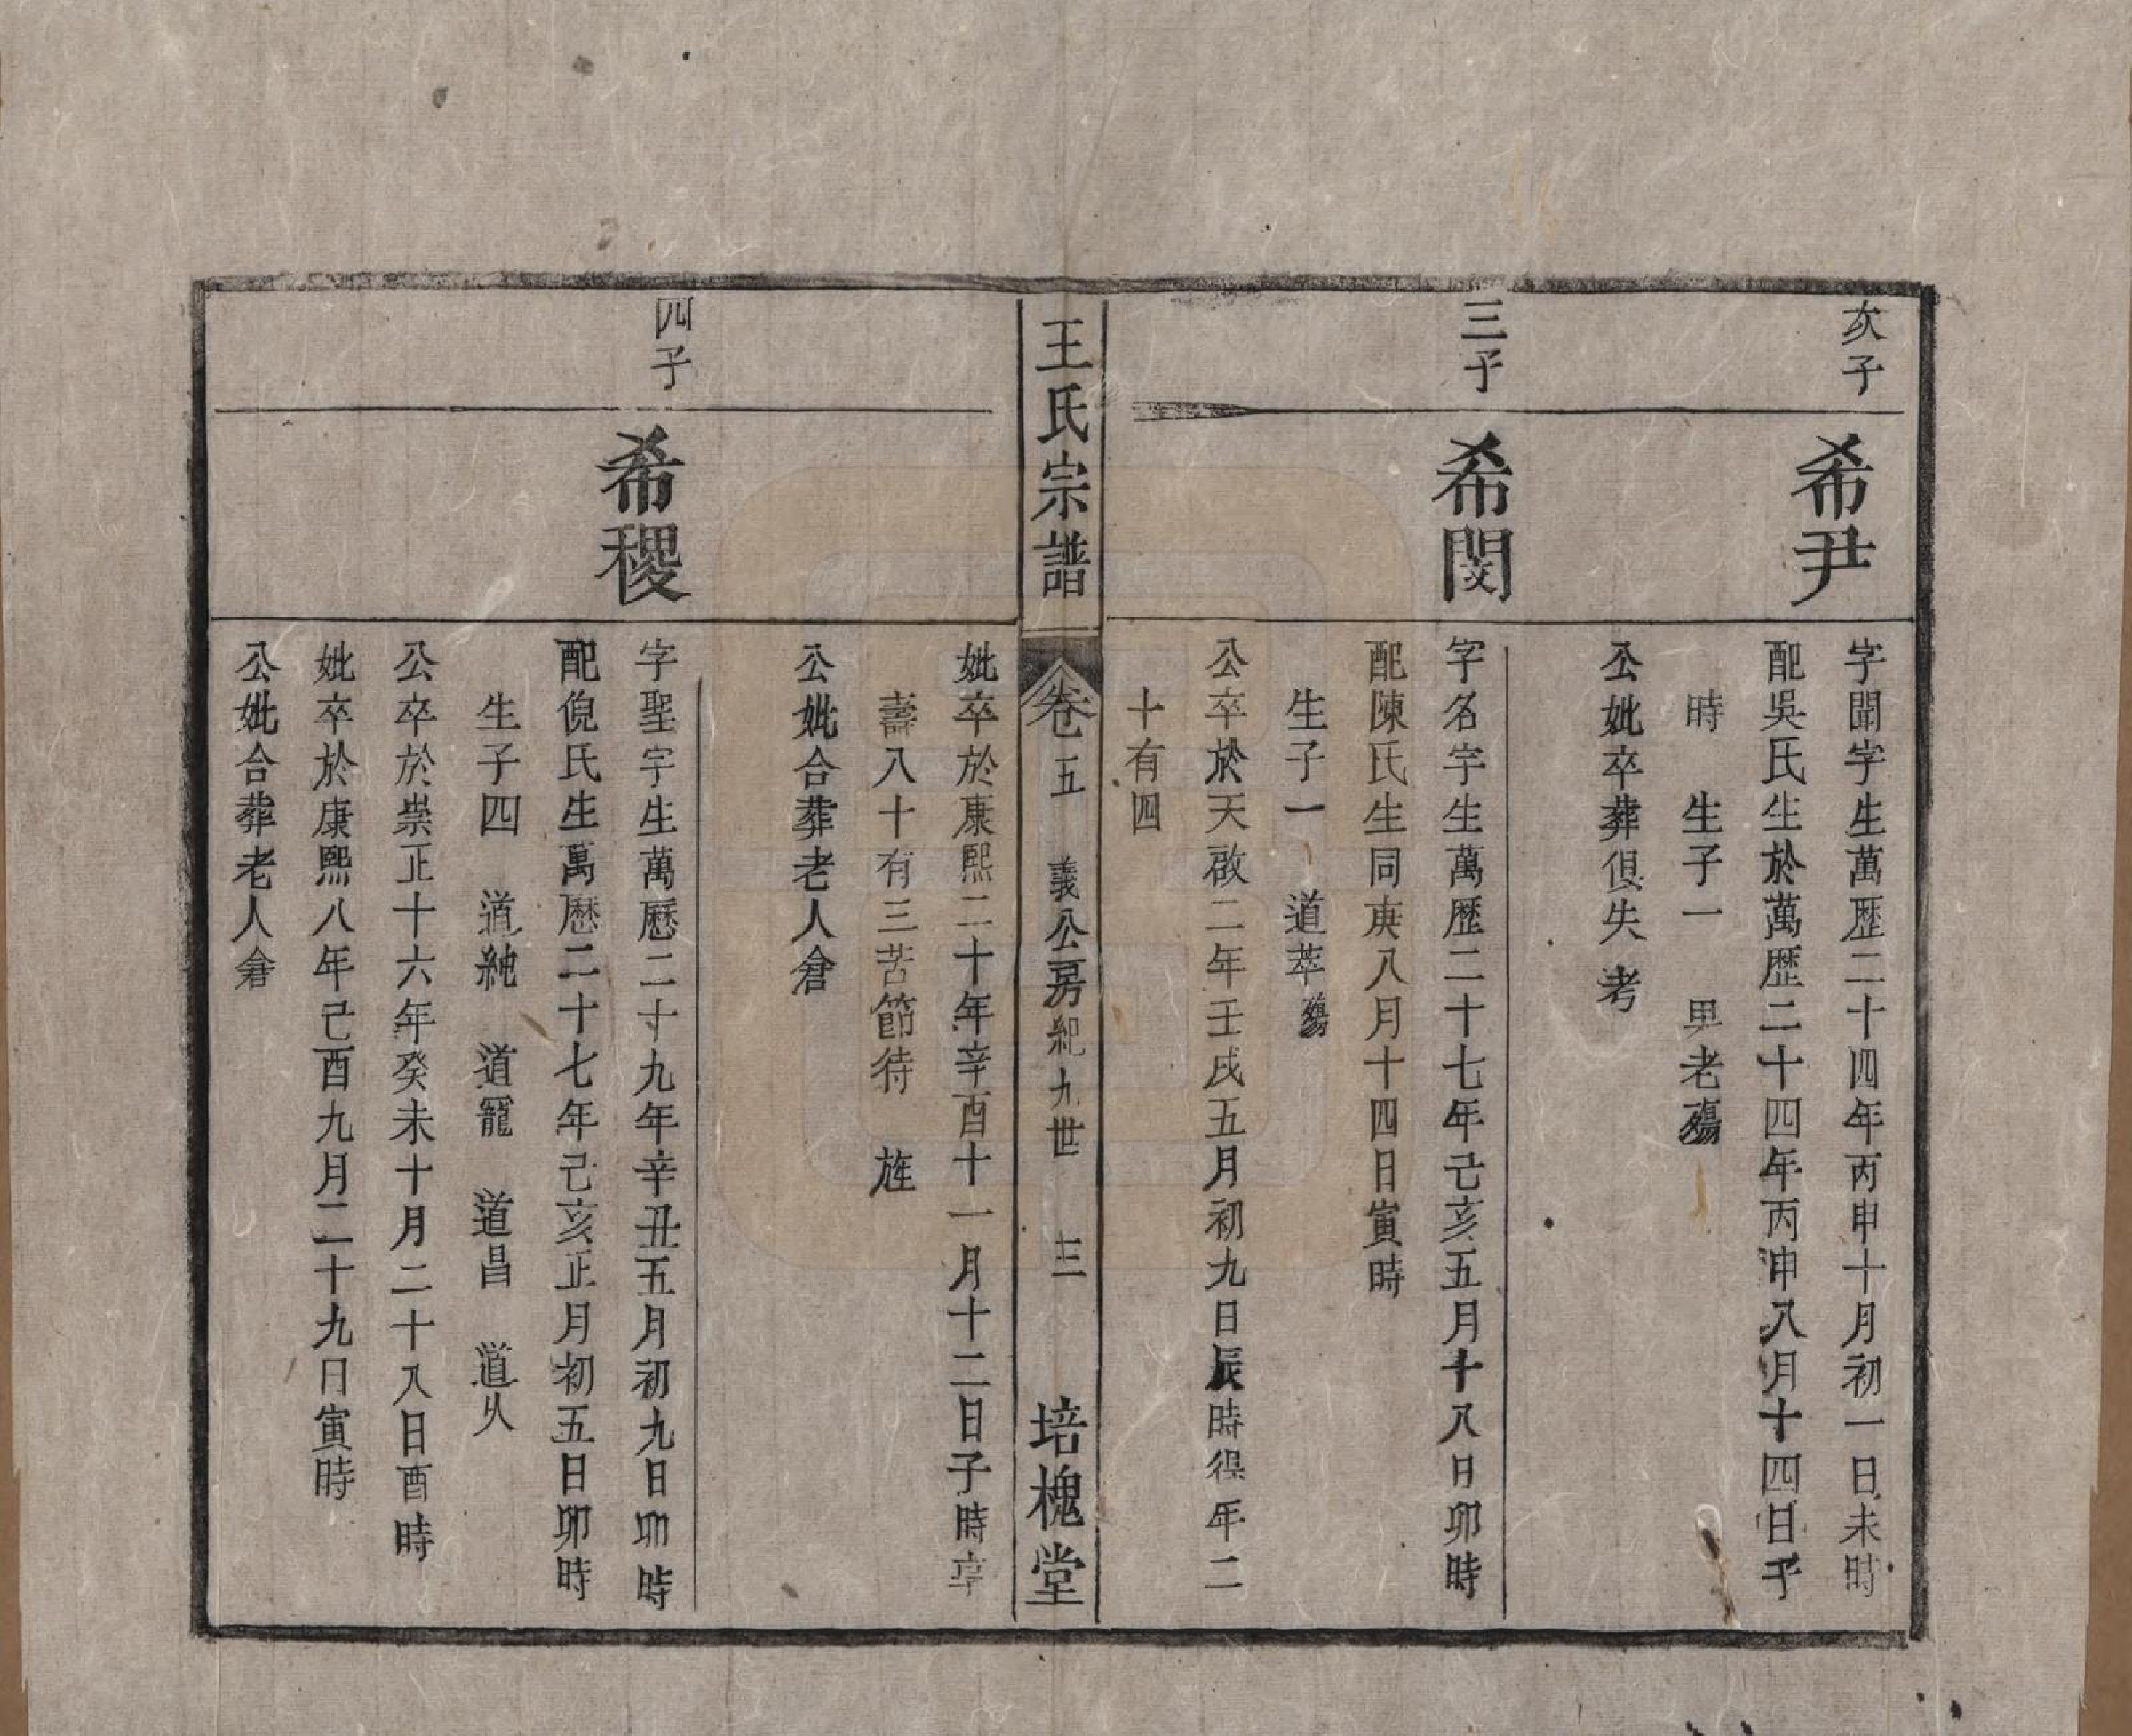 次子
希尹
字聞宇生萬歷二十四年丙申十月初一日未時
配吳氏生於萬歷二十四年丙申八月十四日子
時　生子一　男老殤
公妣卒葬俱失考
三子
希閔
字名宇生萬歷二十七年己亥五月十八日卯時
配陳氏生同庚八月十四日寅時
生子一　道萃殤
公卒於天啟二年壬戌五月初九日辰時得年二
十有四
王氏宗譜
卷五　義公房紀九世　十三
培槐堂
妣卒於康熙二十年辛酉十一月十二日子時享
壽八十有三苦節待　旌
公妣合葬老人倉
四子
希稷
字聖宇生萬歷二十九年辛丑五月初九日卯時
配倪氏生萬歷二十七年己亥正月初五日卯時
生子四　道純　道寵　道昌　道從
公卒於崇正十六年癸未十月二十八日酉時
妣卒於康熙八年己酉九月二十九日寅時
公妣合葬老人倉